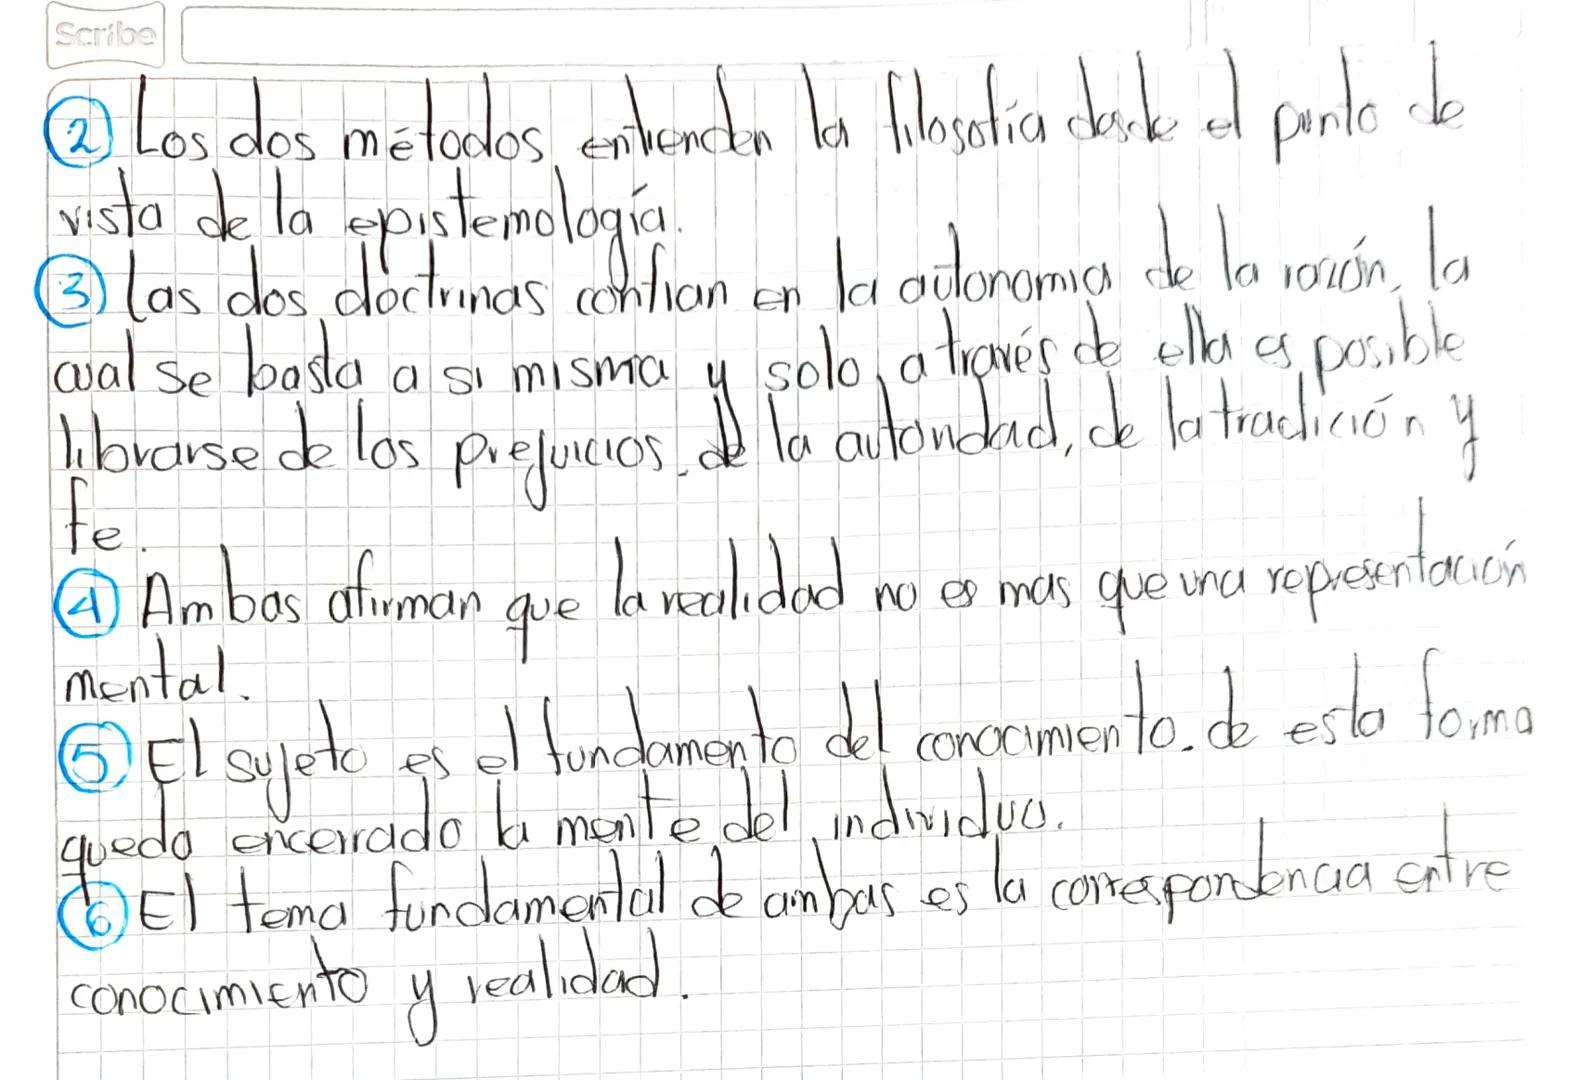 Scribe
2 Los dos métodos entienden la filosofía desde el punto de
vista de la epistemología.
3 Las dos doctrinas confian en la autonomia de la razón, la
cual se basta a si misma y solo a través de ella es posible
librarse de los prejuicios, de la autoridad, de la tradición y
fe.
4 Ambas afirman que la realidad no es mas que una representación
mental.
5 El sujeto es el fundamento del conocimiento. de esta forma
queda encerrado la mente del individuo.
6 El tema fundamental de ambas es la correspondencia entre
conocimiento y realidad.